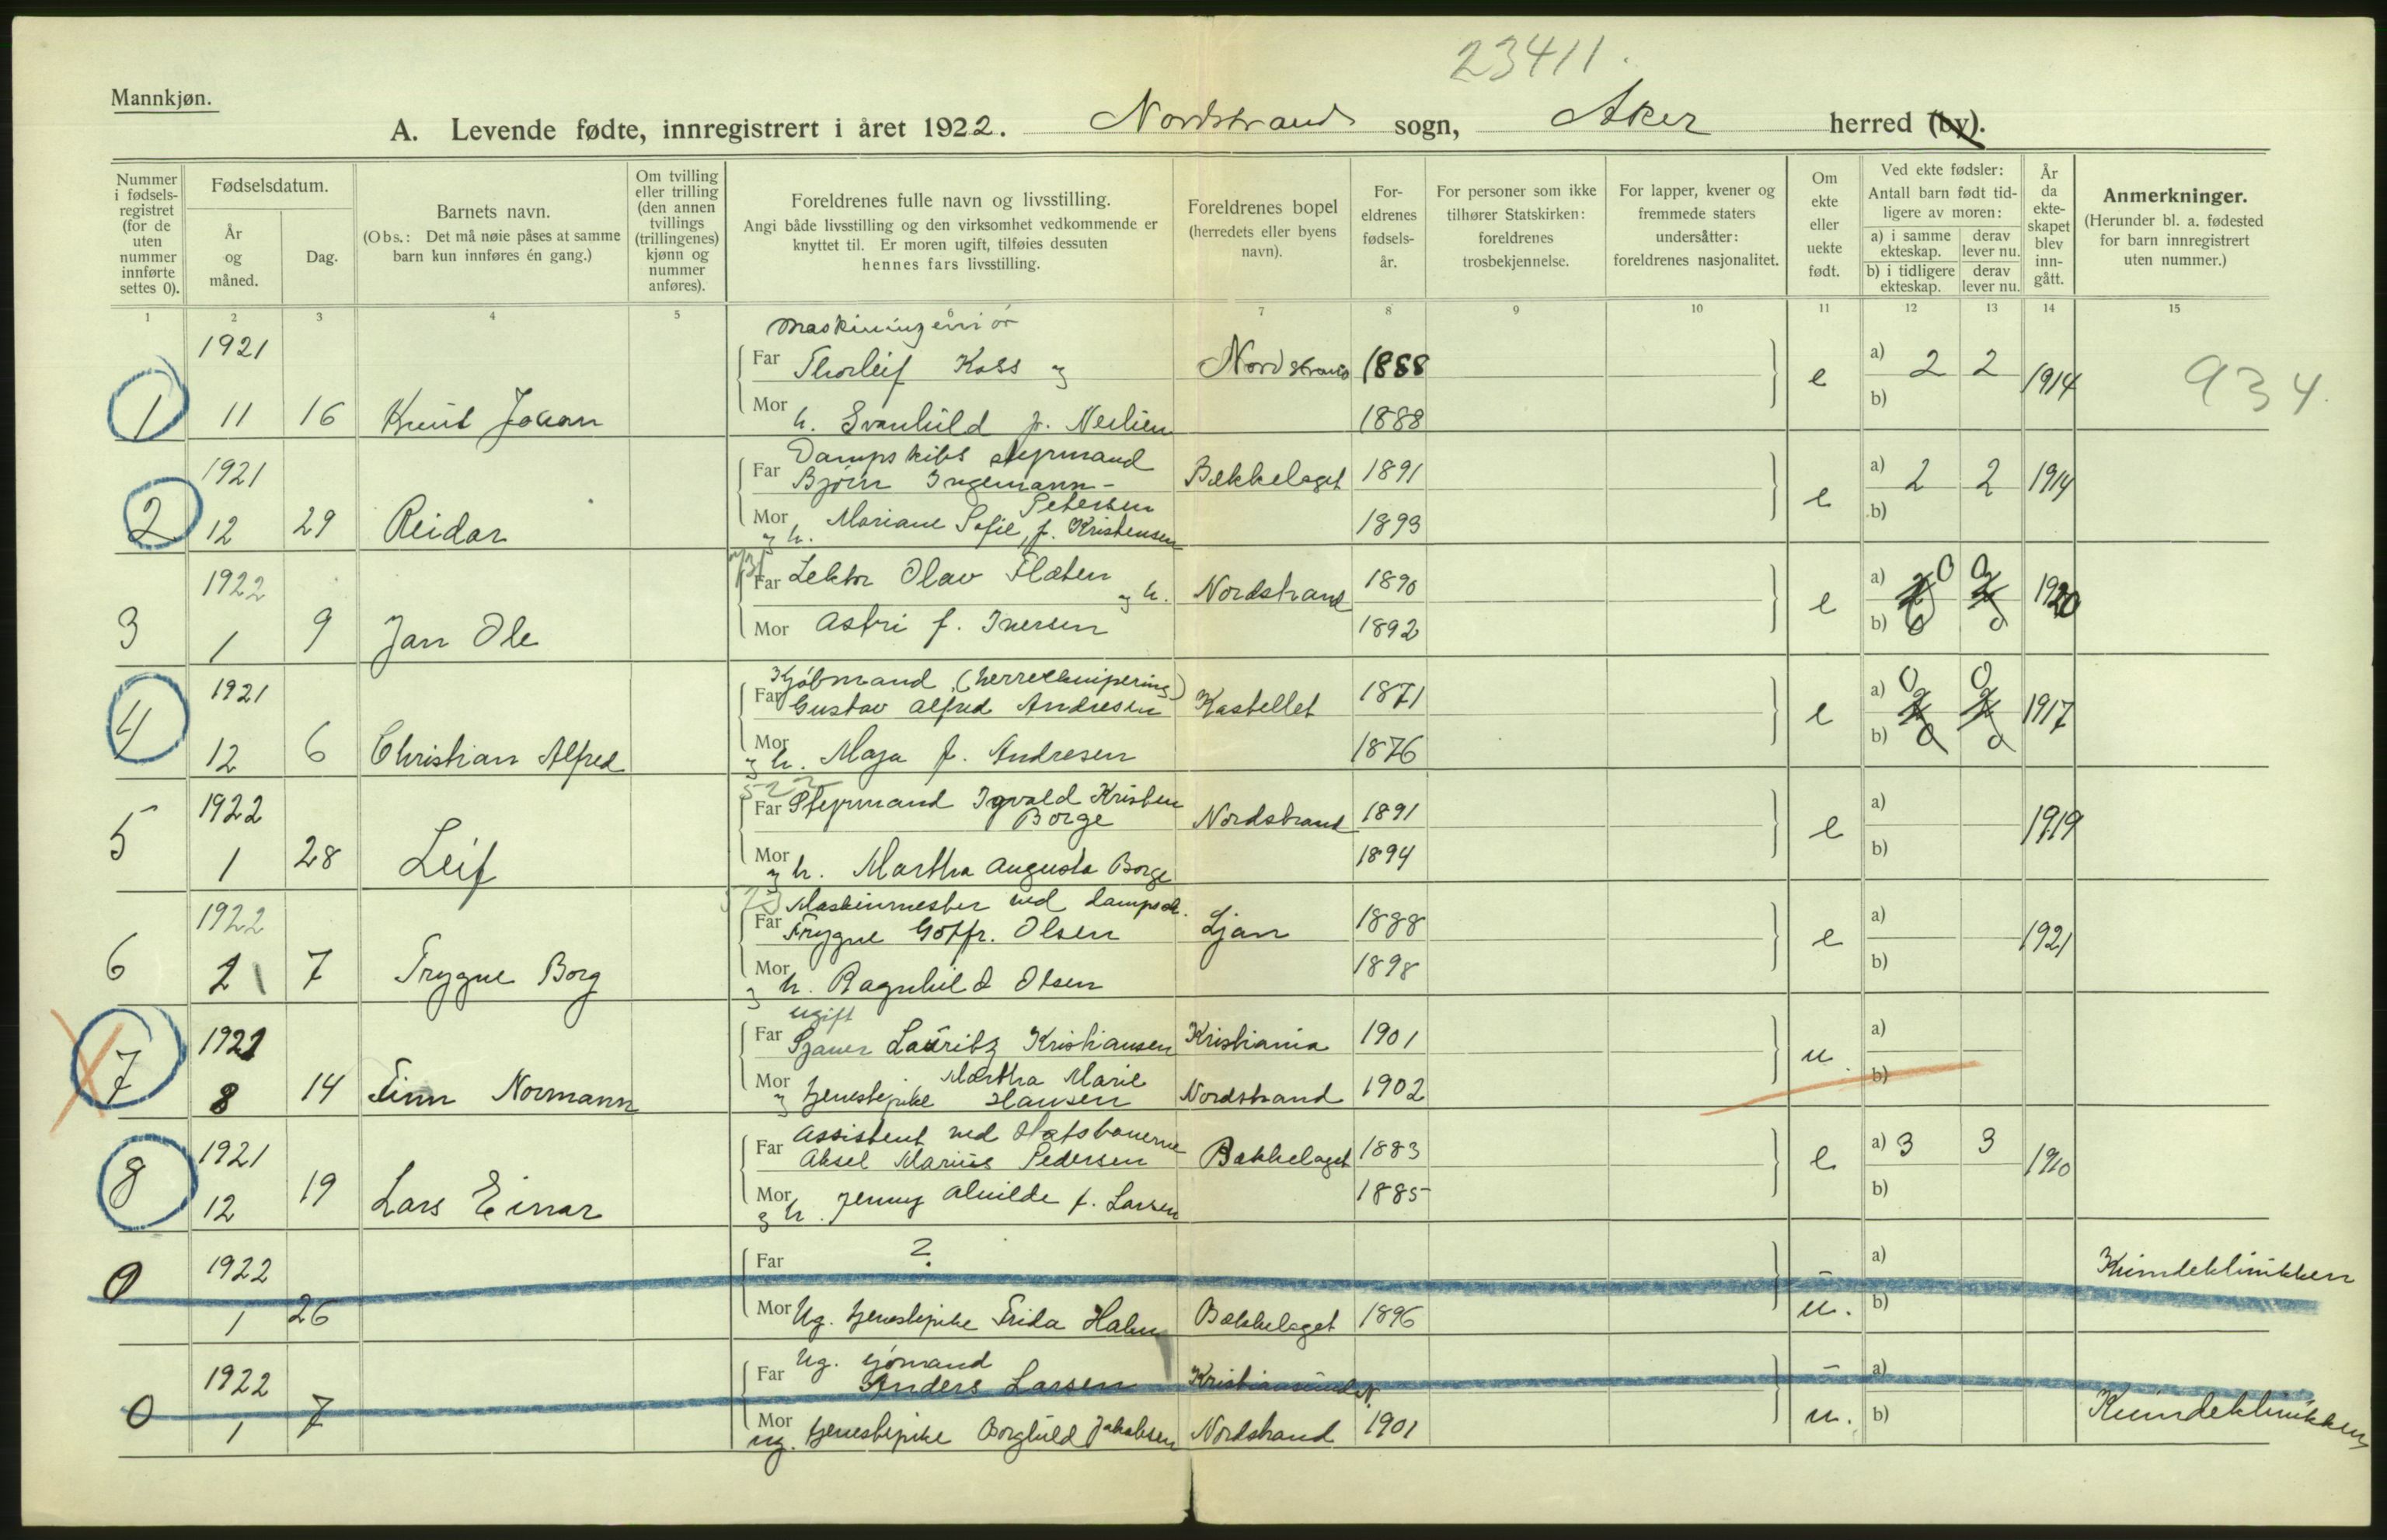 23411.
Mannkjøn.
A. Levende fødte, innregistrert i året 1922. Nordstrand sogn, Aker herred (by).
Nummer i fødsels-registret (for de uten nummer innførte settes 0).
Fødselsdatum.
År og måned.
Dag.
Barnets navn.
(Obs.: Det må nøie påses at samme barn kun innføres én gang.)
Om tvilling eller trilling (den annen tvillings (trillingenes) kjønn og nummer anføres).
Foreldrenes fulle navn og livsstilling.
Angi både livsstilling og den virksomhet vedkommende er knyttet til. Er moren ugift, tilføies dessuten hennes fars livsstilling.
Foreldrenes bopel (herredets eller byens navn).
For-eldrenes fødsels-år.
For personer som ikke tilhører Statskirken: foreldrenes trosbekjennelse.
For lapper, kvener og fremmede staters undersåtter: foreldrenes nasjonalitet.
Om ekte eller uekte født.
Ved ekte fødsler:
Antall barn født tid-ligere av moren:
a) i samme ekteskap.
derav lever nu.
b) i tidligere ekteskap.
derav lever nu.
År da ekte-skapet blev inn-gått.
Anmerkninger.
(Herunder bl. a. fødested for barn innregistrert uten nummer.)
1 2 3 4 5 7 8 9 10 11 12 13 14 15
1921 Maskiningeniør
Far Thorleif Koss og Nordstrand 1888 e a) 2 2 1914 934.
1 11 16 Knut Johan Mor h. Svanhild f. Neilien 1888 b)
1921 Dampskibs styrmand
Far Bjørn Ingemann- Bækkelaget 1891 e a) 2 2 1914
Petersen
2 12 29 Reidar Mor og h. Mariane Sofie, f. Kristensen 1893 b)
1922 Far Lektor Olav Flaten og h. Nordstrand 1890 e a) 0 0 1920
3 1 9 Jan Ole Mor Astri f. Iversen 1892 b) 0 0
1921 Kjøbmand (herreekvipering)
Far Gustav Alfred Andresen Kastellet 1871 e a) 0 0 1917
4 12 6 Christian Alfred Mor og h. Maja f. Andresen 1876 b) 0 0
522
1922 Far Styrmand Ingvald Kristen Borge Nordstrand 1891 e a) 1919
5 1 28 Leif Mor og h. Martha Augusta Borge 1894 b)
1922 Maskinmester ved dampsk.
Far Trygve Gotfr. Olsen Ljan 1888 e a) 1921
6 1 7 Trygve Borg Mor og h. Ragnhild Olsen 1898 b)
1921 ugift
Far Lauritz Kristiansen Kristiania 1901 u a)
7 8 14 Finn Normann Mor og tjenestepike Martha Marie Hansen Nordstrand 1902 b)
1921 Assistent ved Statsbanerne
Far Aksel Marius Pedersen Bækkelaget 1883 e a) 3 3 1910
8 12 19 Lars Einar Mor og h. Jenny Alvilde f. Larsen 1885 b)
0 1922 Far ? – a) Kvindeklinikken
1 26 Mor Ug. tjenestepike Frida Hahn Bækkelaget 1896 u. b)
1922 Far Ug. sjømand Anders Larsen Kristiansund N. – a)
0 1 7 Mor ug. tjenestepike Borghild Jakobsen Nordstrand 1901 u. b) Kvindeklinikken